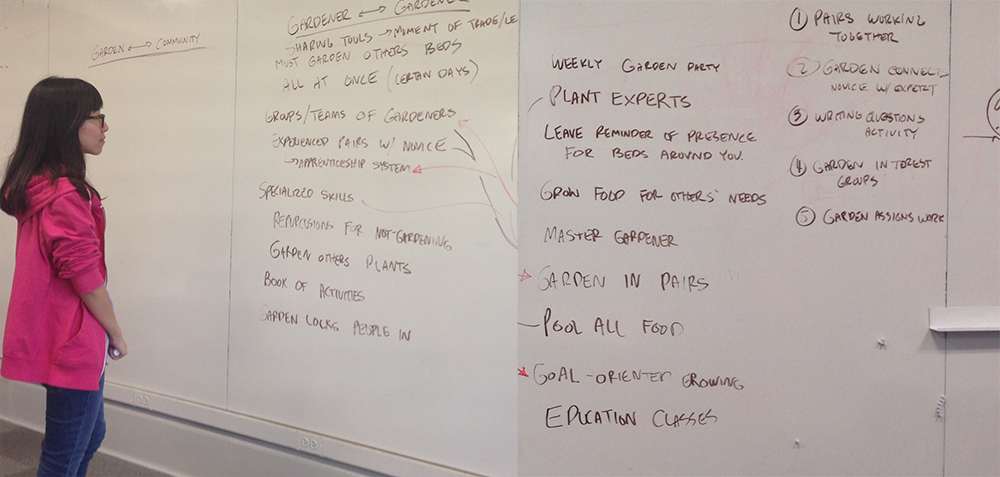 GARDEN ↔ COMMUNITY
GARDENER ↔
→ SHARING TOOLS → MOMENT OF TRADE/LE
MUST GARDEN OTHERS BEDS
ALL AT ONCE (CERTAIN DAYS)
GROUPS/TEAMS OF GARDENERS
EXPERIENCED PAIRS W/ NOVICE
→ APPRENTICESHIP SYSTEM
SPECIALIZED SKILLS
REPURCUSIONS FOR NOT-GARDENING
GARDEN OTHERS PLANTS
BOOK OF ACTIVITIES
GARDEN LOCKS PEOPLE IN
WEEKLY GARDEN PARTY
PLANT EXPERTS
LEAVE REMINDER OF PRESENCE
FOR BEDS AROUND YOU.
GROW FOOD FOR OTHERS' NEEDS
MASTER GARDENER
GARDEN IN PAIRS
POOL ALL FOOD
GOAL-ORIENTED GROWING
EDUCATION CLASSES
① PAIRS WORKING
TOGETHER
② GARDEN CONNECT
NOVICE W/ EXPERT
③ WRITING QUESTIONS
ACTIVITY
④ GARDEN INTEREST
GROUPS
⑤ GARDEN ASSIGNS WORK